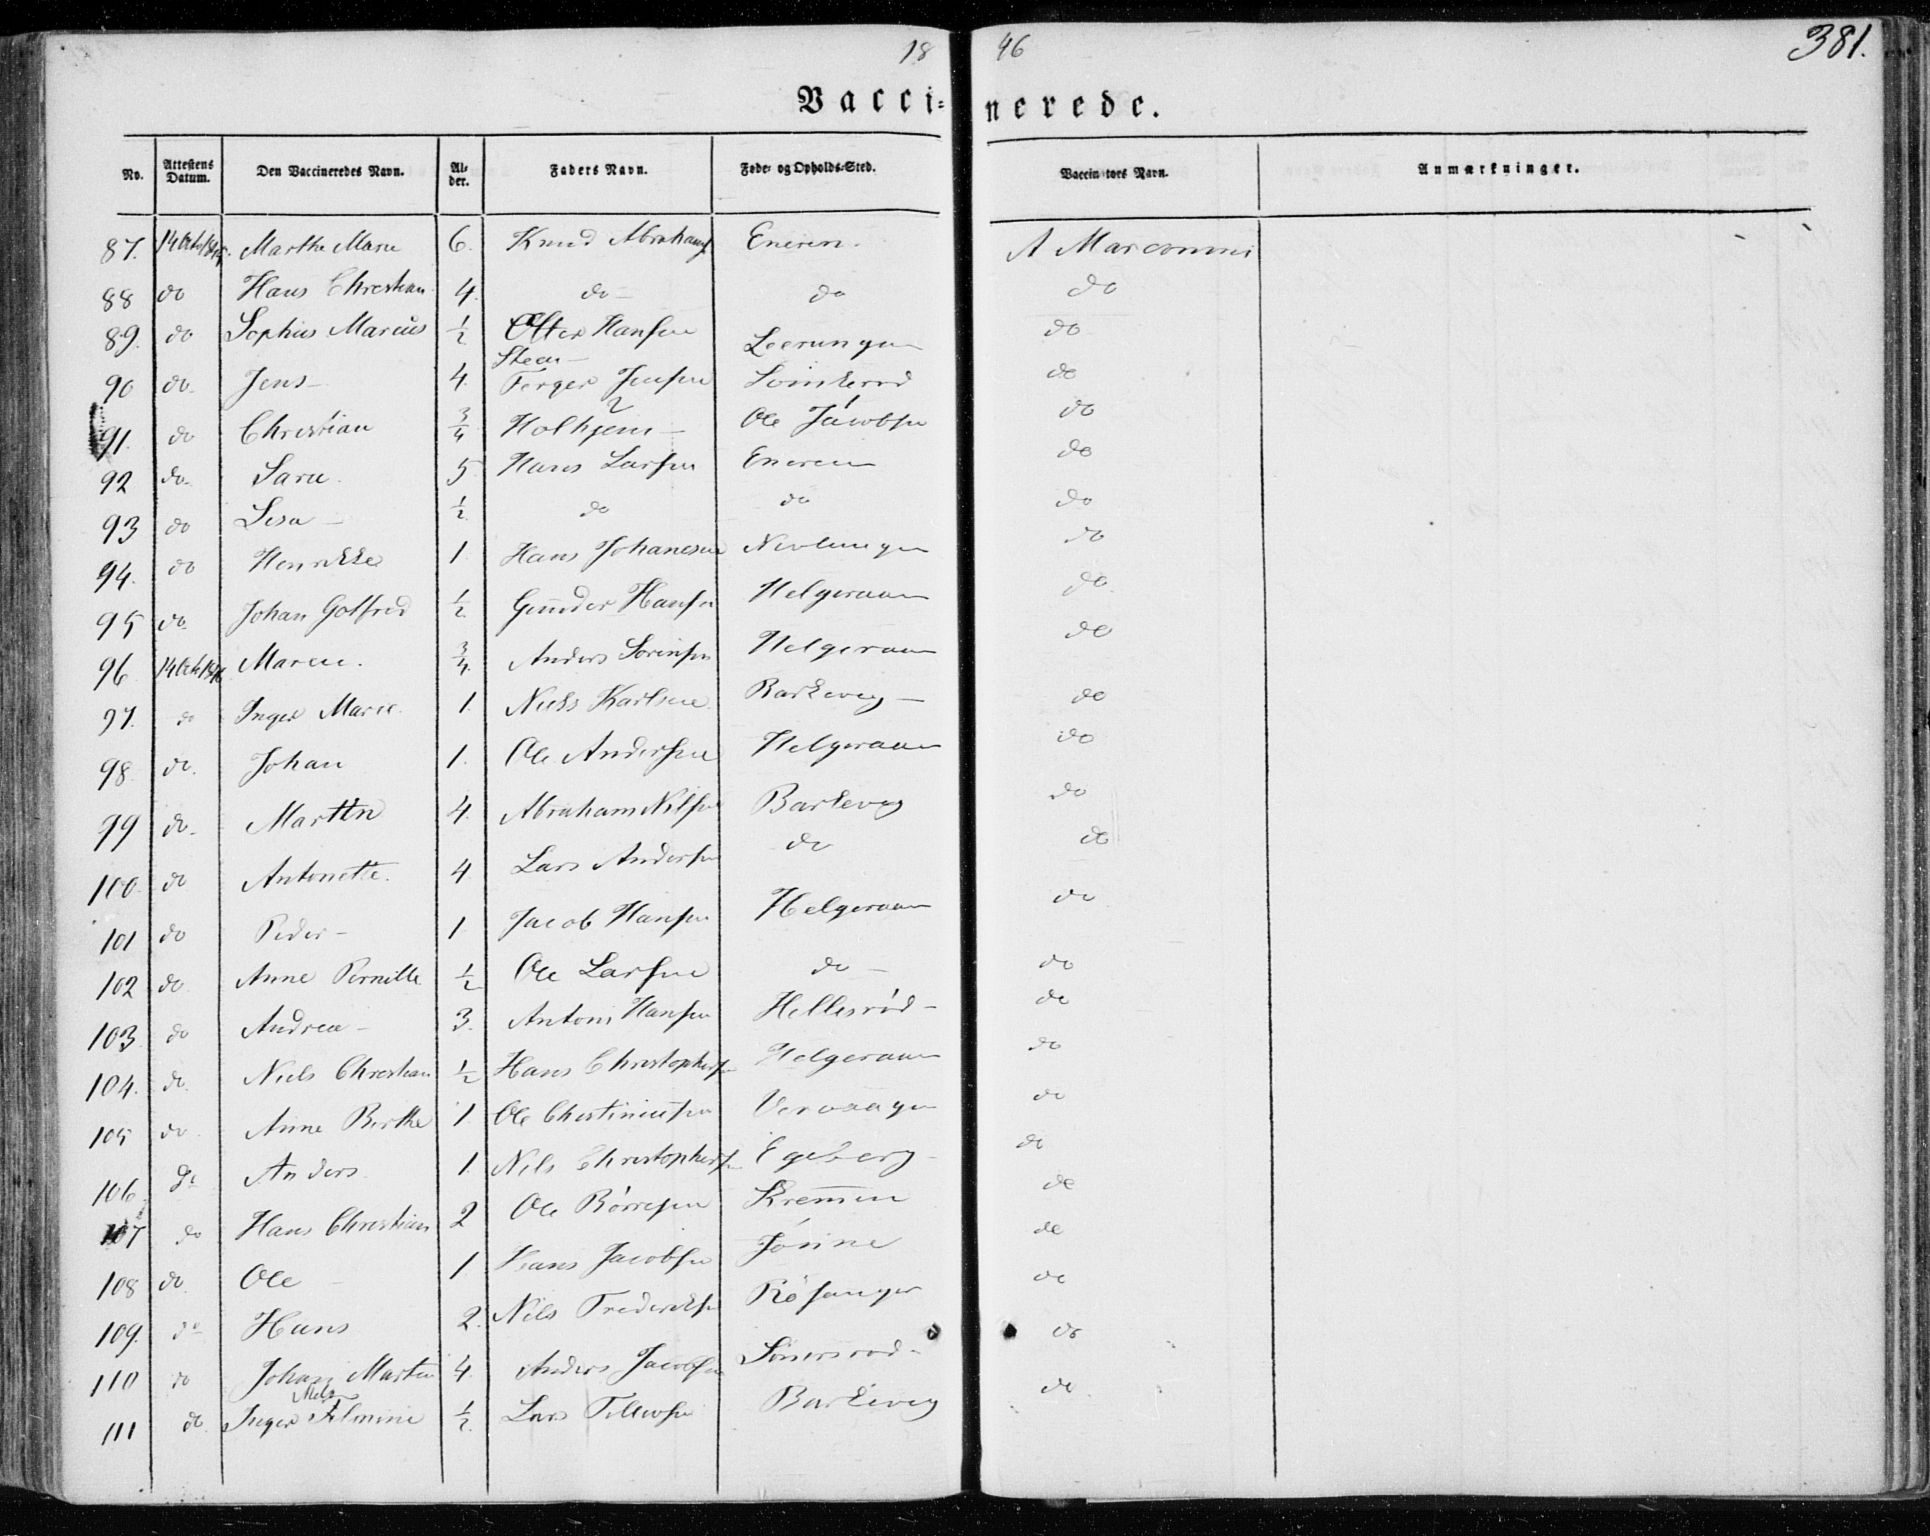 18 46 381.
Vacci- nerede.
No. Attestens Datum. Den Vaccineredes Navn. Al-der. Faders Navn. Føde- og Opholds-Sted. Vaccinators Navn. Anmærkninger.
87. 14 Octo Marthe Marie 6. Knud Abrahams Eneren. A Marconni
88 do Hans Christian 4. do do do
89. do Sophus Marius 1/2 Hansen do
90 do Jens 4. Jensen do
91. do Christian 3/4 Ole Jacobsen do
92 do Sara 5 Hans Larsen Eneren do
93 do Lisa 1/2 do do do
94. do Henrikke 1. Hans Johanesen Nevlungen do
95 do Johan Gotfred 1/2 Gunder Hansen Helgeraaen do
96 14 Oct 1846 Maren. 3/4 Anders Sörensen Helgeraaen do
97. do Inger Marie 1. Niels Karlsen Barkevig do
98 do. Johan 1. Ole Andersen Helgeraaen do
99 do Martin 4. Abraham Nilsen Barkevig do
100. do Antonette. 4 Lars Andersen do do
101 do Peder 1 Jacob Hansen Helgeraaen do
102 do Anne Pernille 1/2 Ole Larsen do do
103. do Andrea 3. Antoni Hansen Hellesröd do
104. do. Niels Christian 1/2 Hans Christophersen Helgeraaen do
105 do Anne Berthe 1. Ole do
106 do Anders 1 Nils Christophersen Egeberg do
107 do Hans Christian 2 Ole Börresen do
108 do Ole 1. Hans Jacobsen do
109. do Hans 2. Nils Frederiksen do
110 do Johan Martin 4. Anders Jacobsen do
111 do Inger 1/2 Lars Barkevig do